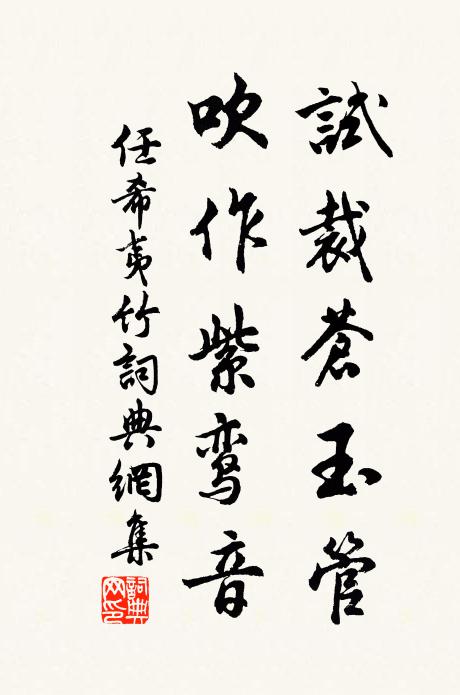 試裁蒼玉管
吹作紫鸾音
任希夷竹詞典網集
詞典网印